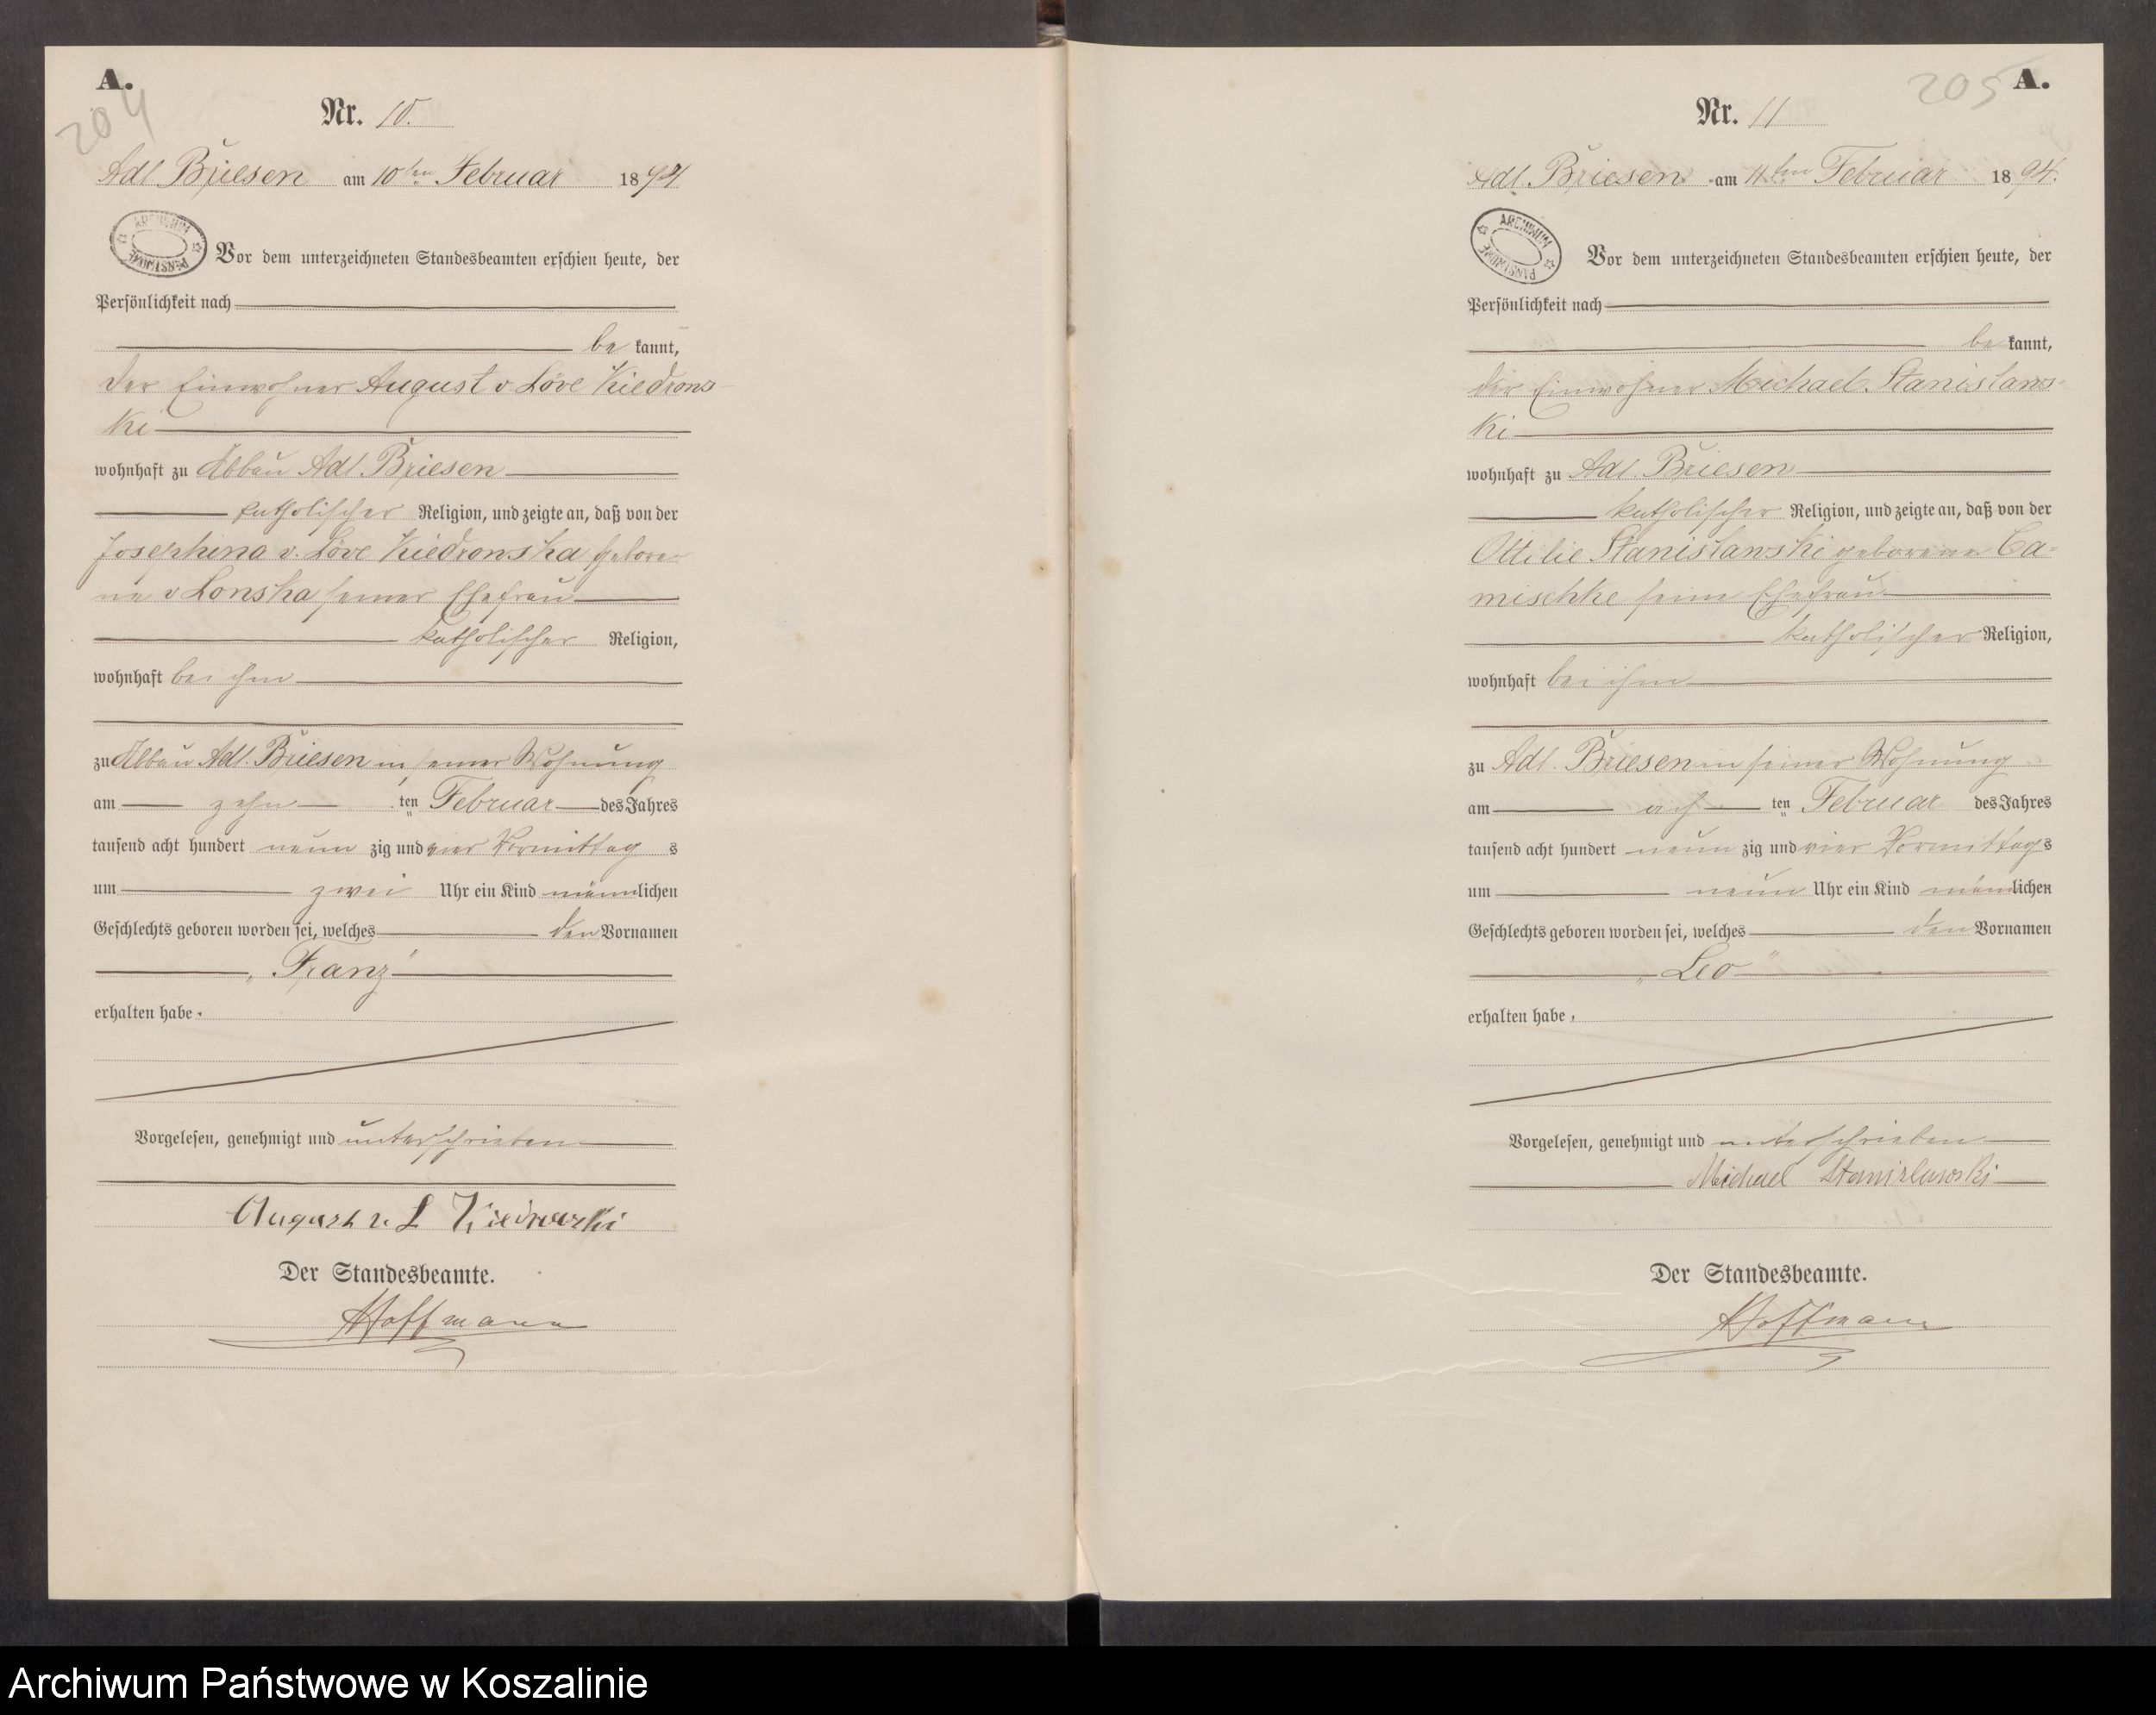 A.
204
Nr. 10.
Adl Briesen am 10ten Februar 1894
ARCHIWUM PAŃSTWOWE
Vor dem unterzeichneten Standesbeamten erschien heute, der
Persönlichkeit nach
be kannt,
der Einwohner August v. Löve Kiedrons-
ki
wohnhaft zu Abbau Adl. Briesen
katholischer Religion, und zeigte an, daß von der
Josephina v. Löve Kiedronska gebore-
ne v Lonska seiner Ehefrau
katholischer Religion,
wohnhaft bei ihm
zu Abbau Adl. Briesen in seiner Wohnung
am zehn ten Februar des Jahres
tausend acht hundert neun zig und vier Vormittag s
um zwei Uhr ein Kind männlichen
Geschlechts geboren worden sei, welches den Vornamen
„Franz"
erhalten habe.
Vorgelesen, genehmigt und unterschrieben
August v. L Kiedronski
Der Standesbeamte.
Hoffmann
205
A.
Nr. 11
Adl. Briesen am 11ten Februar 1894.
ARCHIWUM PAŃSTWOWE
Vor dem unterzeichneten Standesbeamten erschien heute, der
Persönlichkeit nach
be kannt,
der Einwohner Michael Stanislaws-
ki
wohnhaft zu Adl. Briesen
katholischer Religion, und zeigte an, daß von der
Ottilie Stanislawski geborene Ca-
mischke seine Ehefrau
katholischer Religion,
wohnhaft bei ihm
zu Adl. Briesen in seiner Wohnung
am ten Februar des Jahres
tausend acht hundert neun zig und vier Vormittag s
um neun Uhr ein Kind männlichen
Geschlechts geboren worden sei, welches den Vornamen
„Leo"
erhalten habe,
Vorgelesen, genehmigt und unterschrieben
Michael Stanislawski
Der Standesbeamte.
Hoffmann
Archiwum Państwowe w Koszalinie